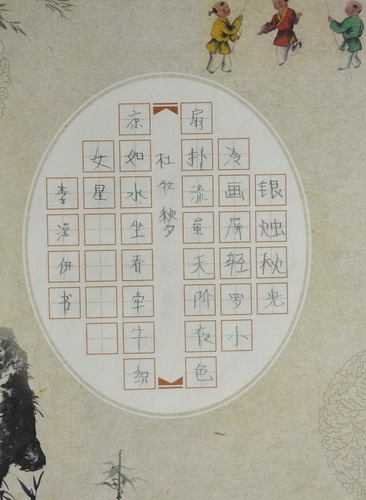 银烛秋光
冷画屏轻罗小
扇扑流萤天阶夜色
杜牧 秋夕
凉如水坐看牵牛织
女星
李伊书